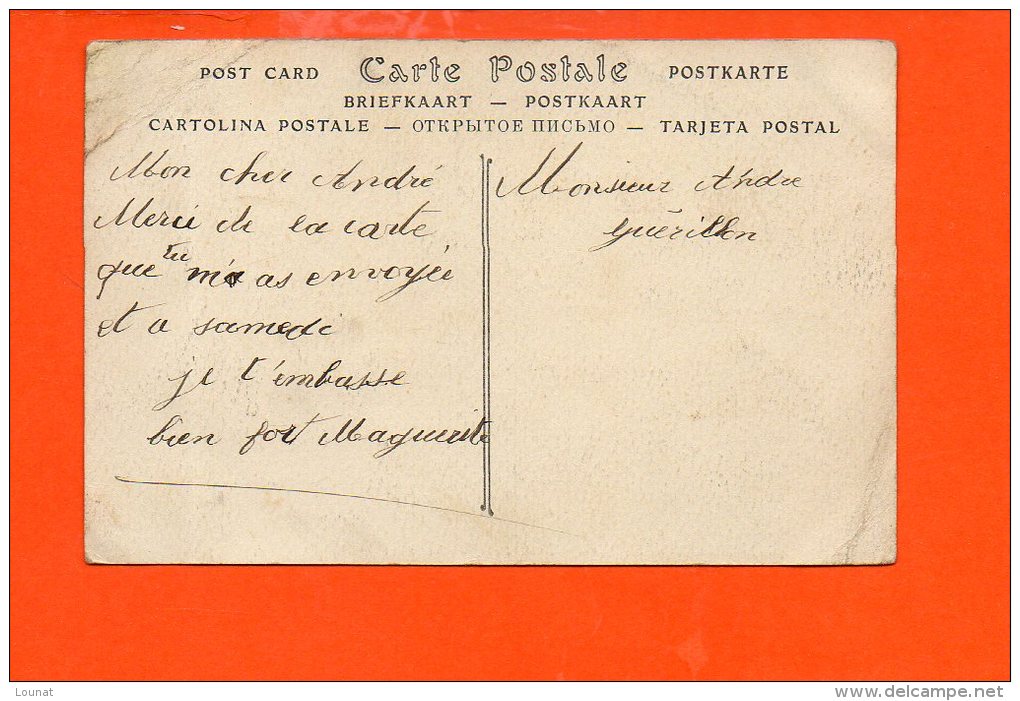 POST CARD Carte Postale POSTKARTE
BRIEFKAART — POSTKAART
CARTOLINA POSTALE — ОТКРЫТОЕ ПИСЬМО — TARJETA POSTAL
Mon cher André
Merci de la carte
que tu m'as envoyée
et a samedi
je t'embasse
bien fort Maguerite
Monsieur André
Guérillon
Lounat
www.delcampe.net